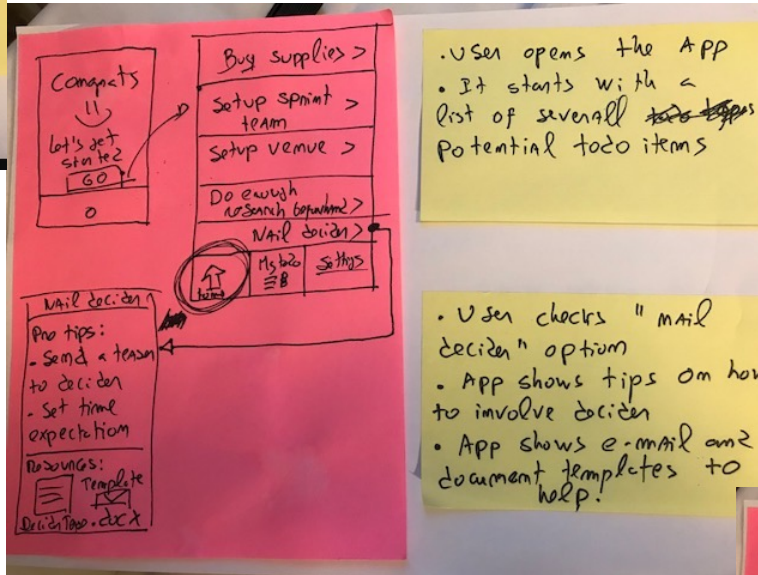 Congrats
Let's get
started
GO
Buy supplies >
Setup sprint >
team
Setup venue >
Do enough
research beforehand >
Nail decider >
Home
My todo
Settings
Nail decider
Pro tips:
• Send a teaser
to decider
• Set time
expectation
Resources:
Template
.docx
• User opens the App
• It starts with a
list of severall
potential todo items
• User checks "nail
decider" option
• App shows tips on how
to involve decider
• App shows e-mail and
document templates to
help.